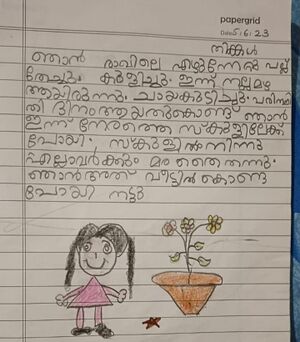 papergrid
Date: 5:6:23
തിങ്കൾ
ഞാൻ രാവിലെ എഴുന്നേൽ പല്ല്
തേച്ചു. കുളിച്ചു. ഇന്ന് നല്ലമഴ
ആയിരുന്നു. ചായകുടിച്ചു. പരിസ്ഥി
തി ദിനം ആയതുകൊണ്ട് ഞാൻ
ഇന്ന് നേരത്തെ സ്കൂളിലേക്ക്
പോയി. സ്കൂളിൽനിന്നും
എല്ലാവർക്കും മരതൈ തന്നു.
ഞാൻഅത് വീട്ടിൽ കൊണ്ടു
പോയി നട്ടു